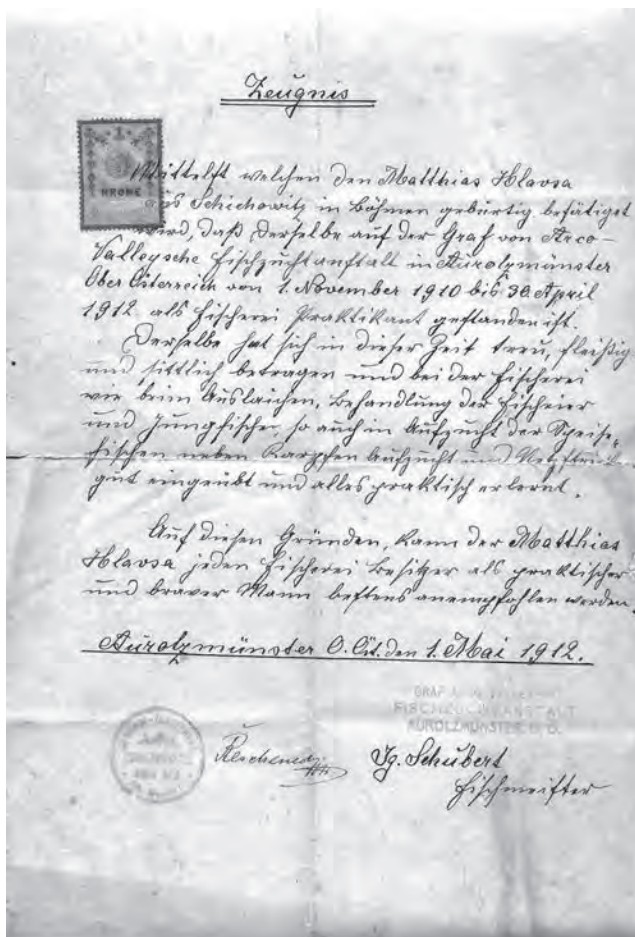 Zeugnis
1
KRONE
Mittelst welchen den Matthias Hlavsa
aus Schichowitz in Böhmen gebürtig bestätiget
wird, daß derselbe auf der Graf von Arco-
Valleysche Fischzuchtanstalt in Aurolzmünster
Ober Österreich von 1. November 1910 bis 30. April
1912 als Fischerei Praktikant gestanden ist.
Derselbe hat sich in dieser Zeit treu, fleißig
und sittlich betragen und bei der Fischerei
wie beim Auslaichen, Behandlung der Fischeier
und Jungfische, so auch in Aufzucht der Speise-
fischen neben Karpfen Aufzucht und
gut eingeübt und alles praktisch erlernt.
Auf diesen Gründen, kann der Matthias
Hlavsa jeden Fischerei Besitzer als praktischer
und braver Mann bestens anempfohlen werden.
Aurolzmünster O. Öst. den 1. Mai 1912.
GRAF
FISCHZUCHTANSTALT
AUROLZMÜNSTER, O. Ö.
Ig. Schubert
Fischmeister